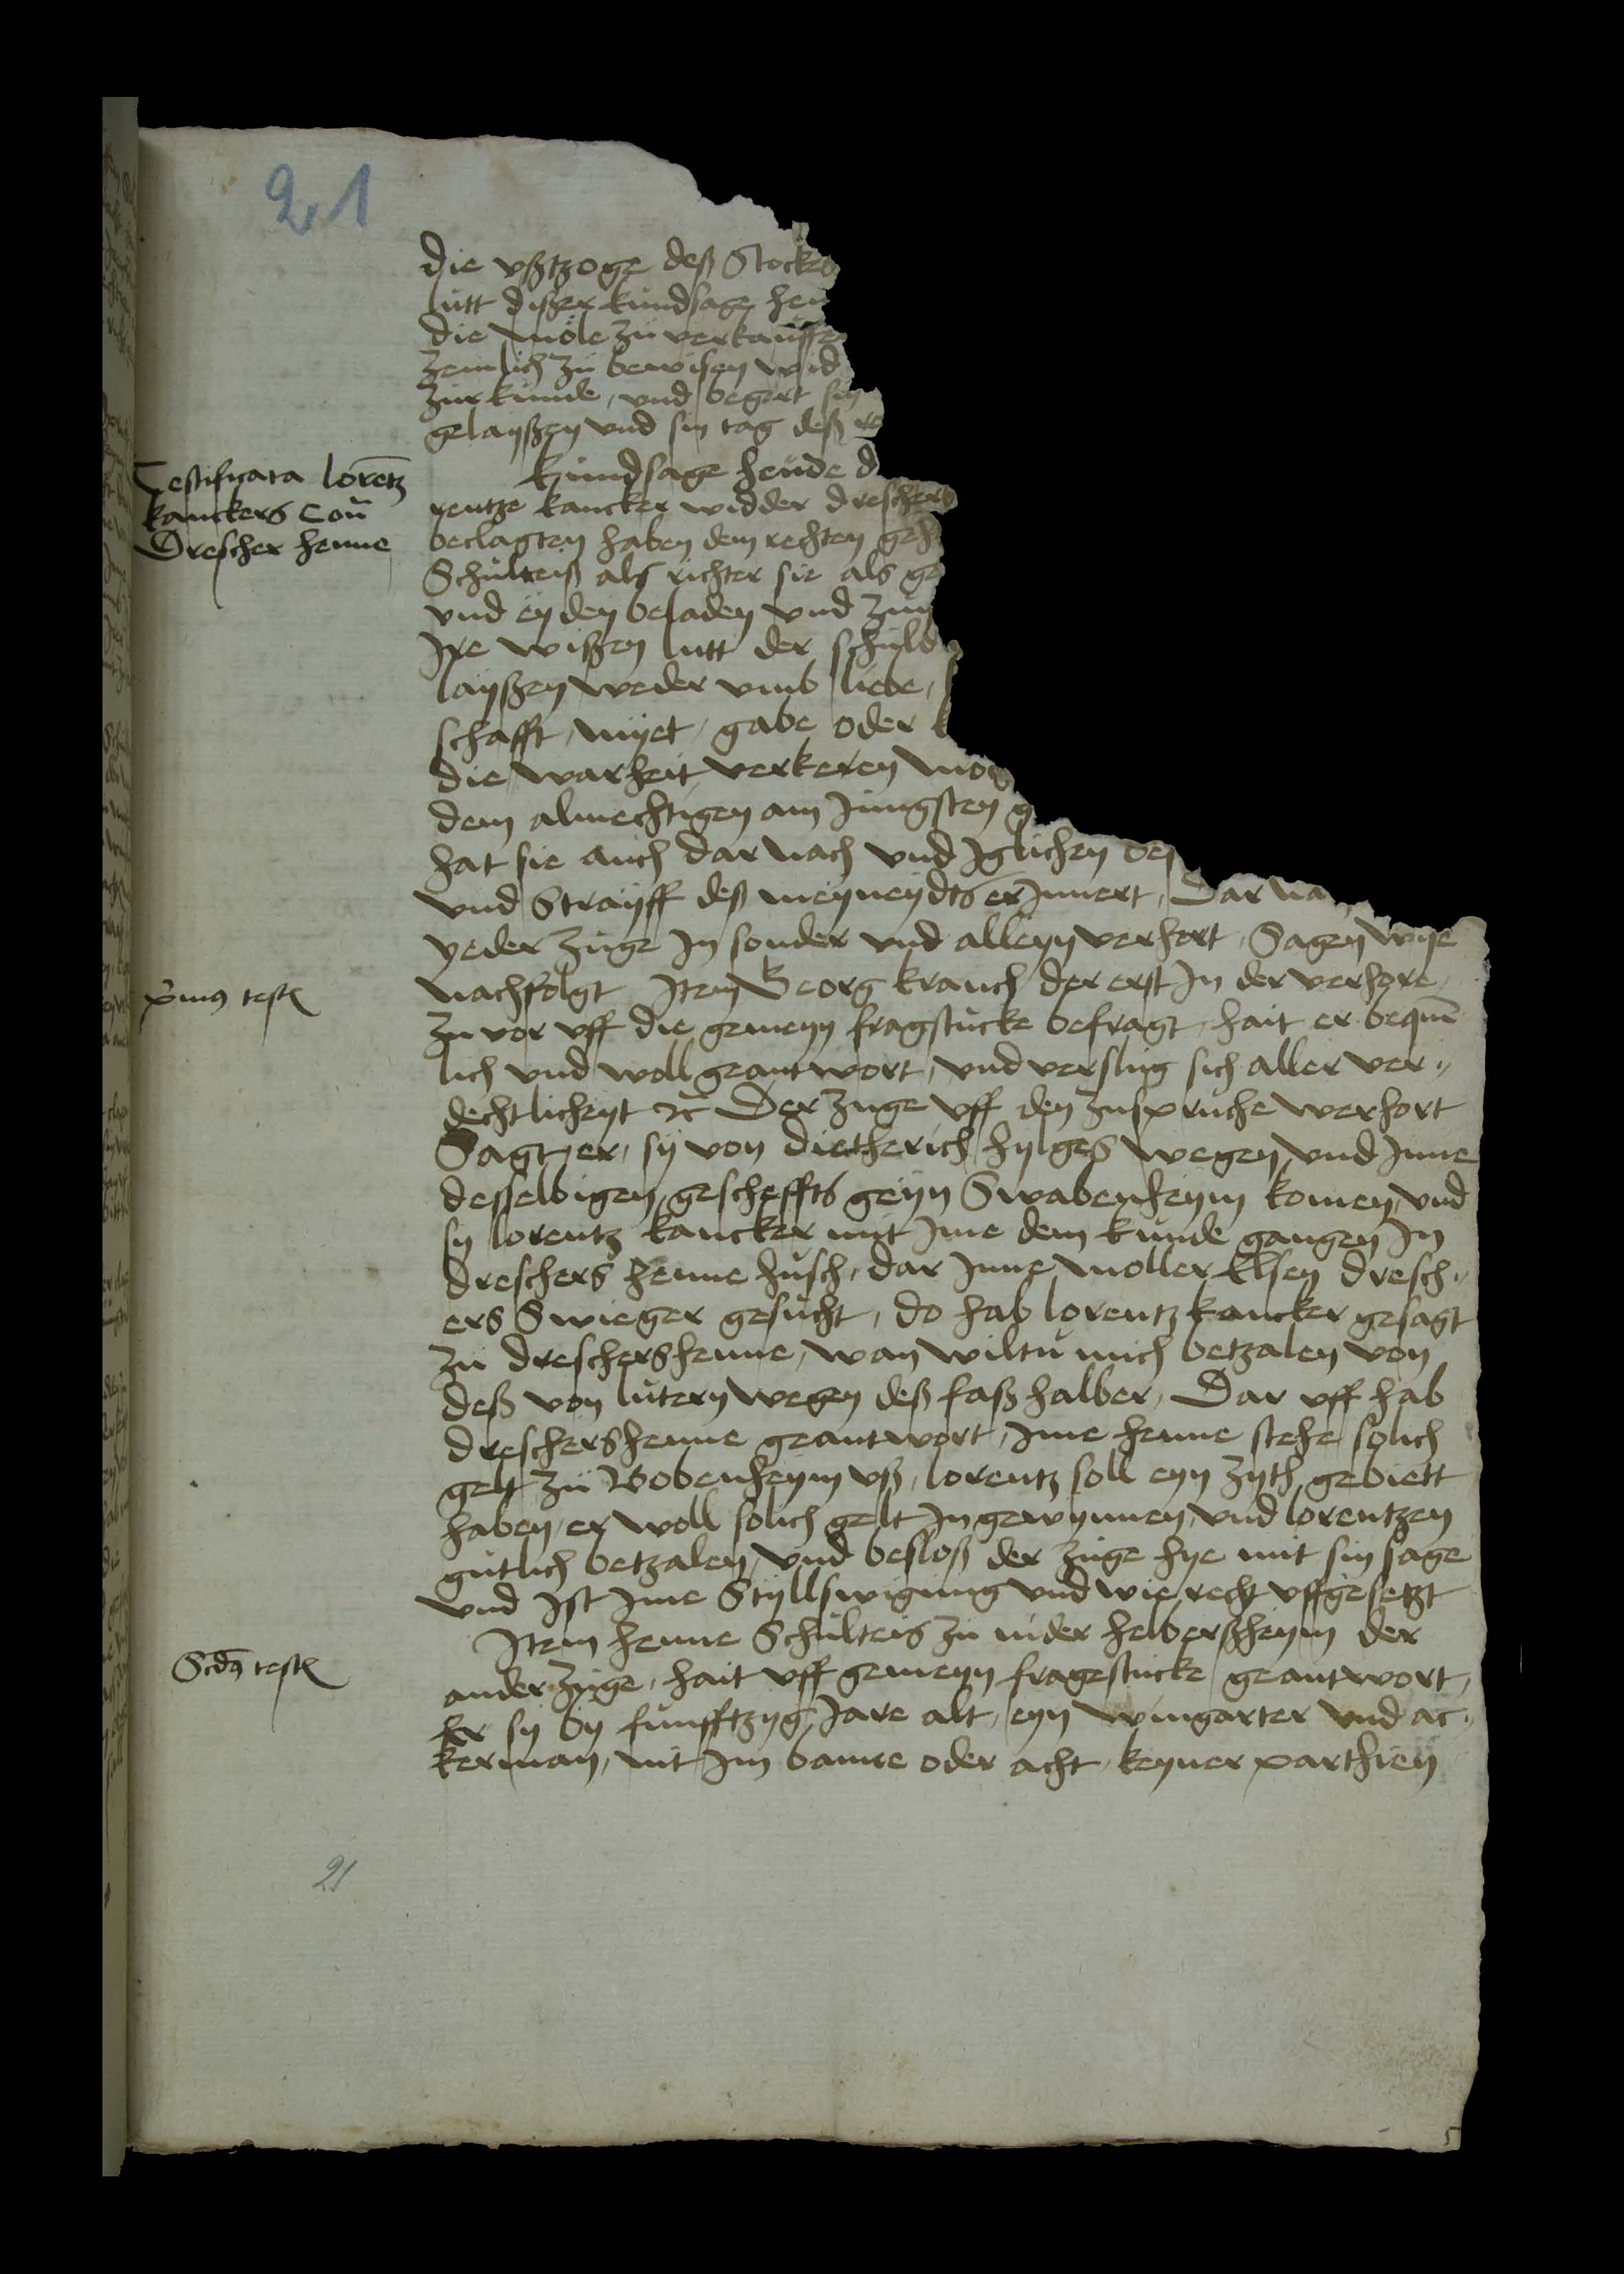 21
die vßtzoge deß Stockes
lutt dißer kundsage hen
die mole zu verkauffe
zemlich zu bewisen wid
zur kunde, vnd begert sin
gelayßen vnd sin tag deß re
Testificata lorentz
kanckers Con
Drescher henne
Kundsage heude d
rentze kancker widder dreschers
beclagten haben dem rechten geh
Schulteiß als richter sie als ge
vnd eyden beladen vnd zu
Ire wißen lutt der schuld
layßen weder vmb liebe,
schafft, myet, gabe oder
die warheit verkeren mog
dem almechtigen am Jungsten g
hat sie auch dar nach vnd Iglichen
vnd Strayff deß meyneydts erJnnert, Dar na
yeder zuge In sonder vnd alleyn verhort, Sagen wye
primus testis
nachfolgt Item Georg krauch der erst In der verhore,
zu vor vff die gemeyn fragstucke befragt, hait er bequem
lich vnd woll geantwort, vnd verslug sich aller ver„
dechtlicheyt etc Der zuge vff den zuspruche verhort
Sagt er, sy von dietherich hylges wegen vnd Inne
desselbigen gescheffts geyn Swabenheym komen, vnd
sy lorentz kancker mit Ime dem kunde gangen In
dreschers henne husch, dar Inne moller Elsen dresch„
ers Swieger gesucht, do hab lorentz kancker gesagt
zu dreschershenne, wan wiltu mich betzalen von
deß von lutern wegen deß faß halber, Dar vff hab
dreschershenne geantwort, Ime henne stehe solich
gelt zu Bobenheym vß, lorentz soll eyn zyth gebiett
haben, er woll solich gelt Ingewynnen, vnd lorentzen
gutlich betzalen, vnd besloß der zuge hye mit sin sage
vnd Ist Ime Styllswigung vnd wie recht vffgesetzt
Secundus testis
Item henne Schulteis zu nider helberßheym der
ander zuge, hait vff gemeyn fragestucke geantwort,
Er sy by funfftzyg Jare alt, eyn wingarter vnd ac„
kerman, nit Im banne oder acht, keyner parthien
21